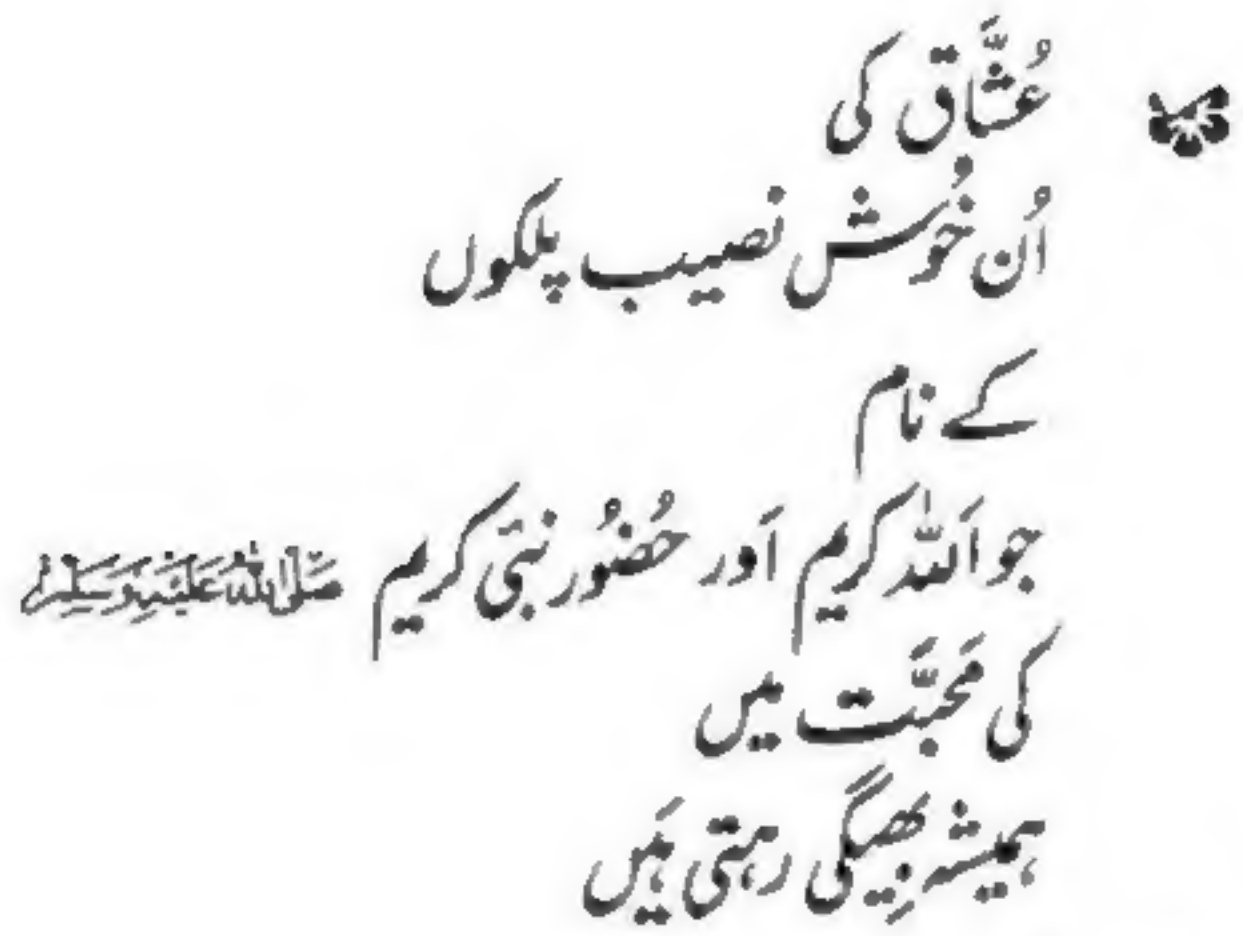 عُشَّاق کی
اُن خُوش نصیب پلکوں
کے نام
جو اَللہ کریم اَور حُضُور نبیّ کریم صَلَّى اللهُ عَلَيْهِ وَسَلَّم
کی مَحبَّت میں
ہمیشہ بِھیگی رہتی ہَیں